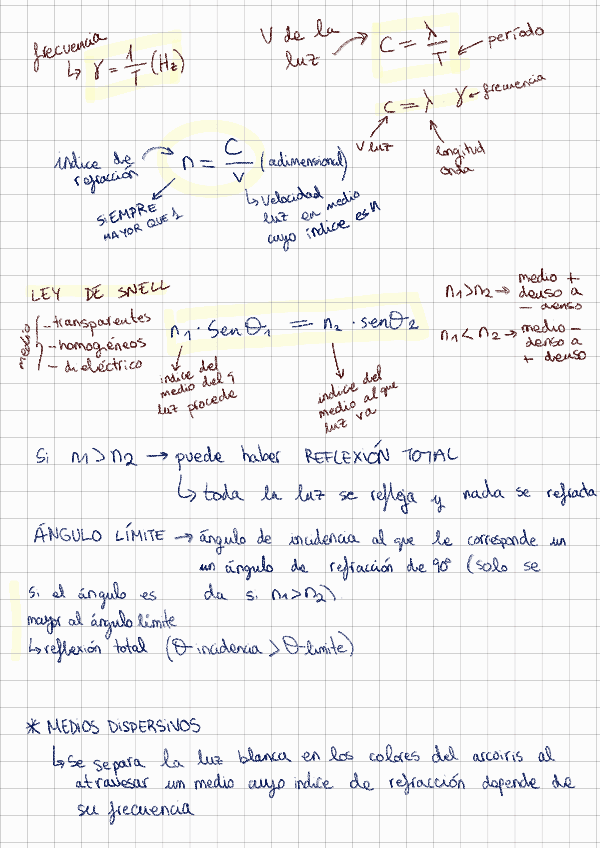 frecuencia
↳ γ = 1/T (Hz)
V de la luz → C = λ/T ← período
C = λ γ ← frecuencia
V luz
longitud onda
índice de refracción → n = C/v (adimensional)
SIEMPRE MAYOR QUE 1
↳ Velocidad luz en medio cuyo índice es n
LEY DE SNELL
medio
- transparentes
- homogéneos
- dieléctrico
n1 · Sen θ1 = n2 · sen θ2
índice del medio del q luz procede
indice del medio al que luz va
n1 > n2 → medio + denso a - denso
n1 < n2 → medio - denso a + denso
Si n1 > n2 → puede haber REFLEXIÓN TOTAL
↳ toda la luz se refleja y nada se refracta
ÁNGULO LÍMITE → ángulo de incidencia al que le corresponde un
un ángulo de refracción de 90º (solo se
da si n1 > n2)
si el ángulo es
mayor al ángulo límite
↳ reflexión total (θ incidencia > θ limite)
* MEDIOS DISPERSIVOS
↳ Se separa la luz blanca en los colores del arcoiris al
atravesar un medio cuyo indice de refracción depende de
su frecuencia